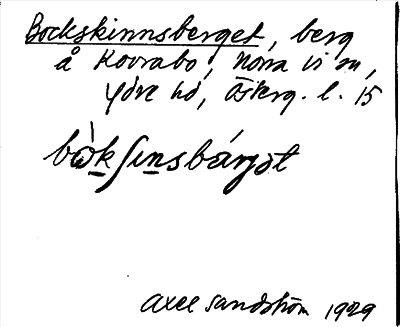 Bockskinnsberget, berg
å Korrabo, Norra Vi sn,
Ydre hd, Österg. l. 15
bòkʃinsbárjət
Axel Sandström 1929